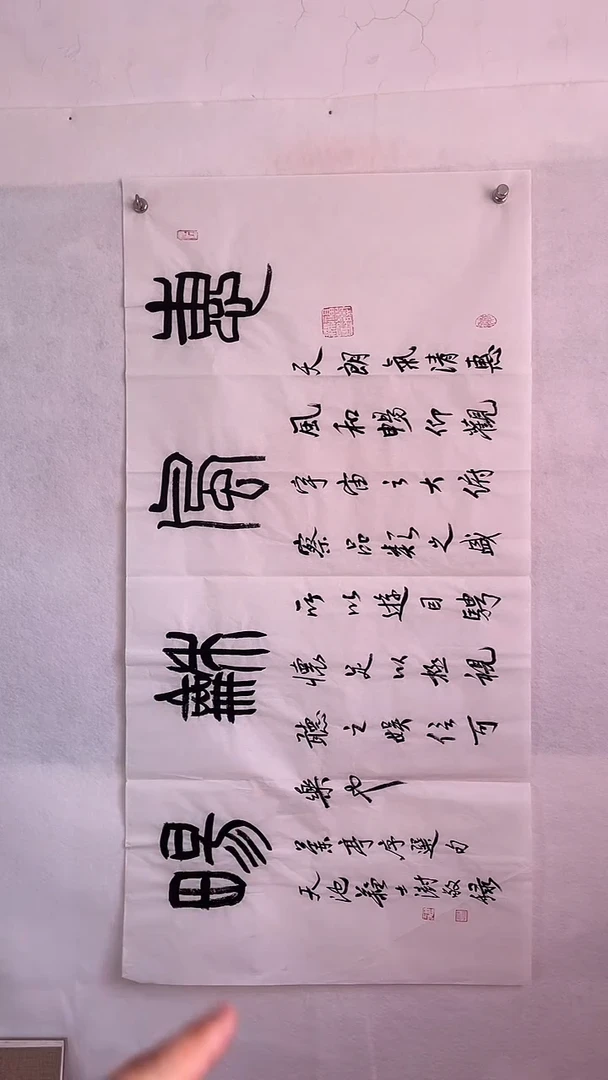 惠風龢暢
天朗氣清惠
風和暢仰觀
宇宙之大俯
察品類之盛
所以遊目騁
懷足以極視
聽之娛信可
樂也
蘭亭序選句
天池